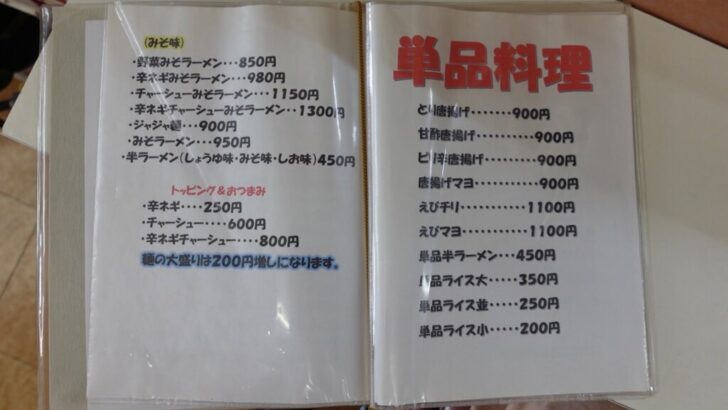 (みそ味)
・野菜みそラーメン・・・850円
・辛ネギみそラーメン・・・980円
・チャーシューみそラーメン・・・1150円
・辛ネギチャーシューみそラーメン・・・1300円
・ジャジャ麺・・・900円
・みそラーメン・・・950円
・半ラーメン(しょうゆ味・みそ味・しお味)450円
トッピング&おつまみ
・辛ネギ・・・・250円
・チャーシュー・・・・600円
・辛ネギチャーシュー・・・・800円
麺の大盛りは200円増しになります。
単品料理
とり唐揚げ・・・・・・・900円
甘酢唐揚げ・・・・・・・・・900円
ピリ辛唐揚げ・・・・・・・・900円
唐揚げマヨ・・・・・・・・・900円
えびチリ・・・・・・・・・1100円
えびマヨ・・・・・・・・・1100円
単品半ラーメン・・・・450円
単品ライス大・・・・・350円
単品ライス並・・・・・250円
単品ライス小・・・・・200円